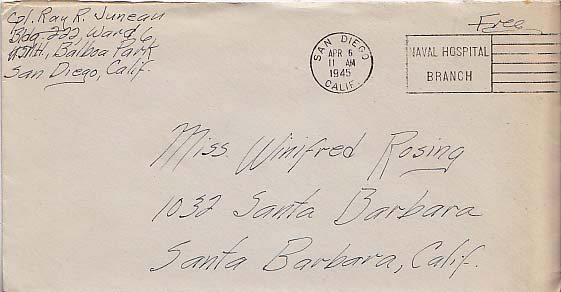 Col. Ray R. Juneau
Bldg 222, Ward 6,
USNH, Balboa Park
San Diego, Calif.
Free
SAN DIEGO
APR 6
11 AM
1945
CALIF.
NAVAL HOSPITAL
BRANCH
Miss Winifred Rosing
1032 Santa Barbara
Santa Barbara, Calif.